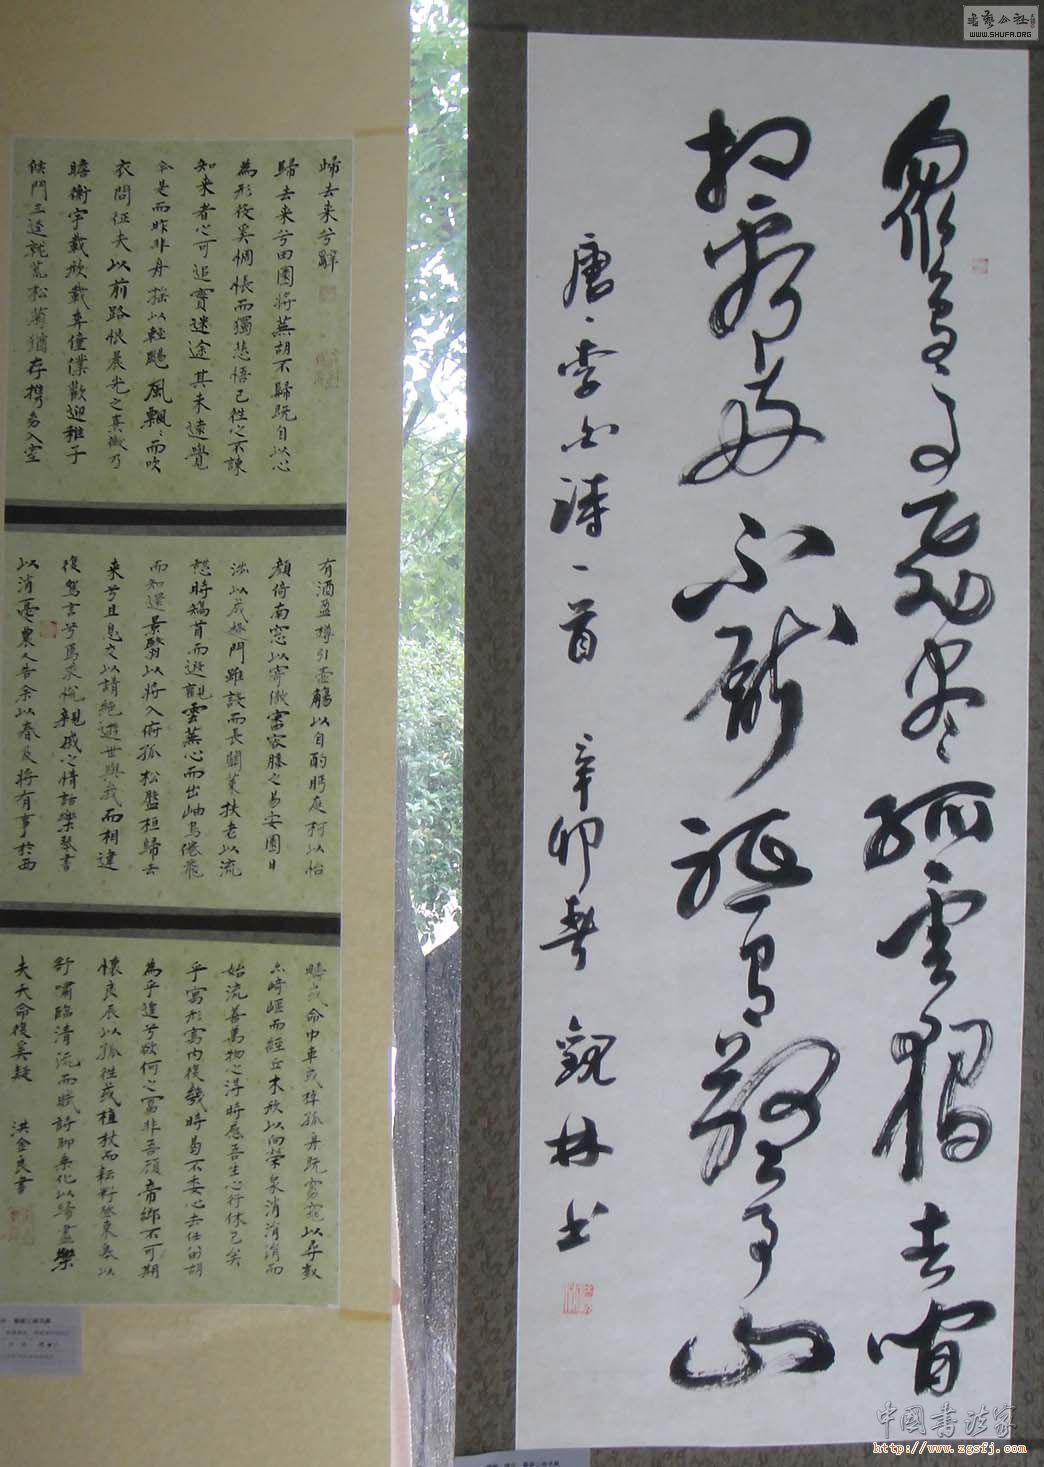 眾鳥高飛盡孤雲獨去閒
相看兩不厭祇有敬亭山
唐李白詩一首 辛卯春 觀林書
歸去来兮辭
歸去来兮田園将蕪胡不歸既自以心
為形役奚惆悵而獨悲悟已往之不諫
知来者之可追實迷途其未遠覺
今是而昨非舟摇以輕颺風飄飄而吹
衣問征夫以前路恨晨光之熹微乃
瞻衡宇載欣載奔僮僕歡迎稚子
候門三逕就荒松菊猶存携幼入室
有酒盈樽引壺觴以自酌眄庭柯以怡
顏倚南窓以寄傲審容膝之易安園日
涉以成趣門雖設而長關策扶老以流
憩時矯首而遐觀雲無心而出岫鳥倦飛
而知還景翳以将入撫孤松盤桓歸去
来兮且息交以請絶遊世與我而相違
復駕言兮焉求悦親戚之情話樂琴書
以消憂農人告余以春及将有事於西
疇或命巾車或棹孤舟既窈窕以尋壑
亦崎嶇而經丘木欣以向榮泉涓涓而
始流善萬物之得時感吾生之行休已矣
乎寓形寓内復幾時曷不委心去任留胡
為乎遑兮欲何之富非吾願帝鄉不可期
懷良辰以孤往或植杖而耘籽登東皋以
舒嘯臨清流而賦詩聊乘化以歸盡樂
夫天命復奚疑 洪金良書
WWW.SHUFA.ORG
中國書法家
http://www.zgsfj.com